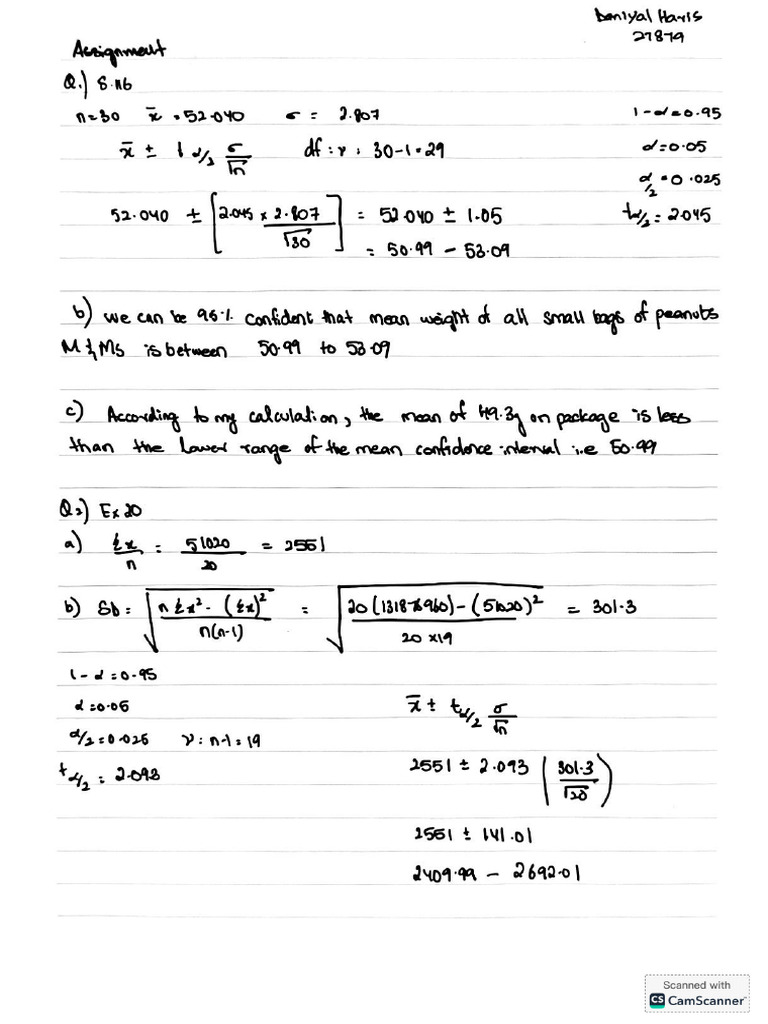 Daniyal Haris
27879
Assignment
Q.1) 8.116
n=30 x̄ = 52.040 σ = 2.807 1-α=0.95
x̄ ± t α/2 σ/√n df: ν: 30-1=29 α=0.05
α/2 = 0.025
52.040 ± [2.045 x 2.807/√30] = 52.040 ± 1.05 tα/2 = 2.045
= 50.99 - 53.09
b) We can be 95% confident that mean weight of all small bags of peanuts
M&Ms is between 50.99 to 53.09
c) According to my calculation, the mean of 49.3g on package is less
than the lower range of the mean confidence interval i.e 50.99
Q2) Ex 20
a) Σx/n = 51020/20 = 2551
b) Sb = √(nΣx² - (Σx)²/n(n-1)) = √(20(131876960) - (51020)²/20x19) = 301.3
1-α=0.95
α=0.05 x̄ ± tα/2 σ/√n
α/2=0.025 ν: n-1=19
tα/2 = 2.093 2551 ± 2.093 (301.3/√20)
2551 ± 141.01
2409.99 - 2692.01
Scanned with
CS CamScanner